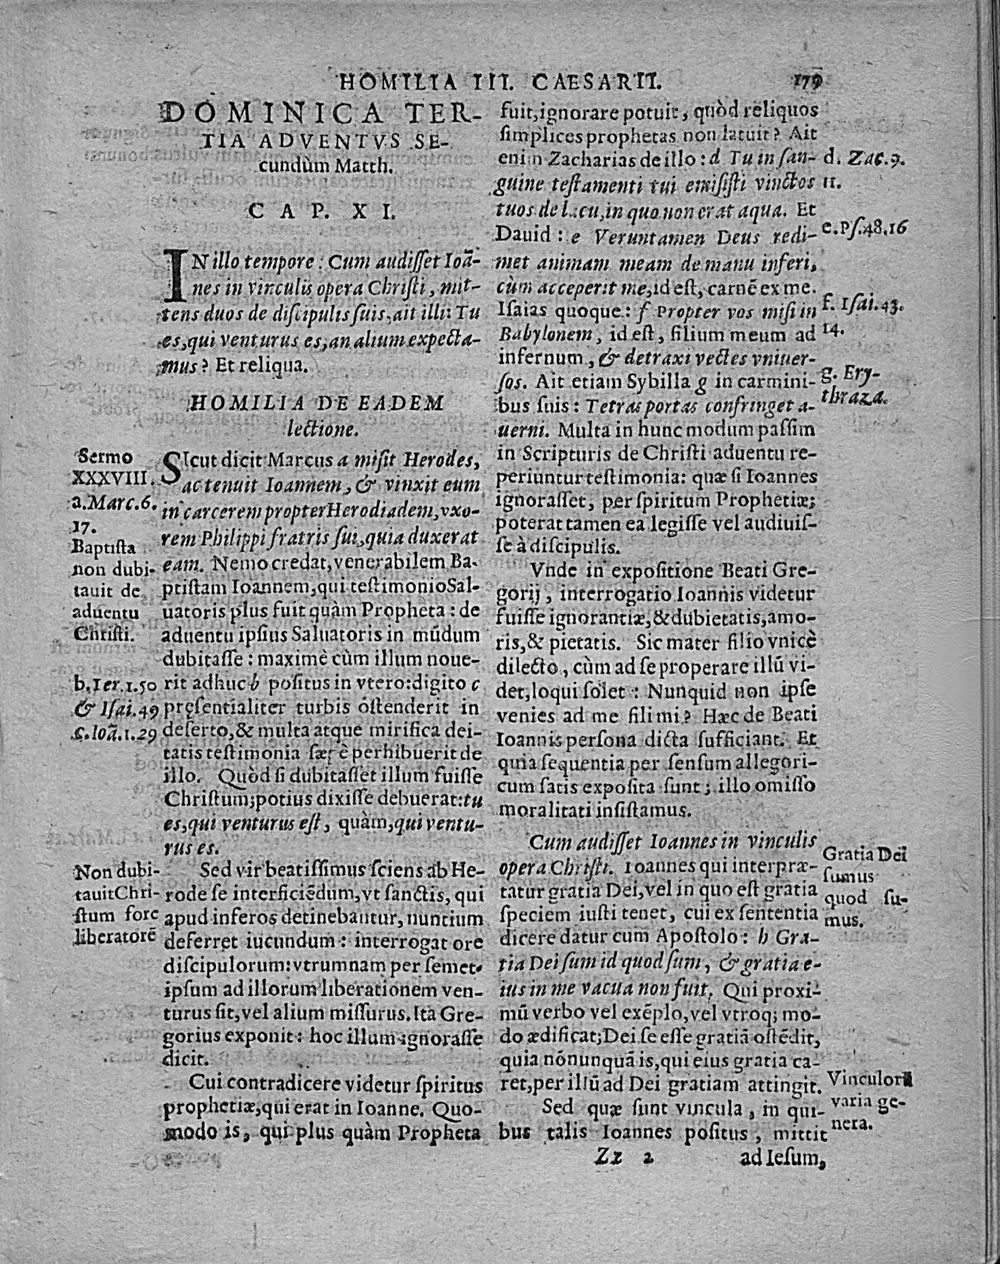 HOMILIA III. CAESARII. 179
DOMINICA TER-
TIA ADVENTVS SE-
cundùm Matth.
CAP. XI.
IN illo tempore: Cum audisset Ioã-
nes in vinculis opera Christi, mit-
tens duos de discipulis suis, ait illi: Tu
es, qui venturus es, an alium expecta-
mus? Et reliqua.
HOMILIA DE EADEM
lectione.
Sermo
XXXVIII.
a. Marc. 6.
17.
Baptista
non dubi-
tauit de
aduentu
Christi.
b. Ier. 1. 50
& Isai. 49
c. Ioã. 1. 29
SIcut dicit Marcus a misit Herodes,
ac tenuit Ioannem, & vinxit eum
in carcerem propter Herodiadem, vxo-
rem Philippi fratris sui, quia duxerat
eam. Nemo credat, venerabilem Ba-
ptistam Ioannem, qui testimonio Sal-
uatoris plus fuit quàm Propheta: de
aduentu ipsius Saluatoris in mũdum
dubitasse: maximè cùm illum noue-
rit adhuc b positus in vtero: digito c
pręsentialiter turbis ostenderit in
deserto, & multa atque mirifica dei-
tatis testimonia sæpè perhibuerit de
illo. Quòd si dubitasset illum fuisse
Christum; potius dixisse debuerat: tu
es, qui venturus est, quàm, qui ventu-
rus es.
Non dubi-
tauit Chri-
stum fore
liberatorẽ
Sed vir beatissimus sciens ab He-
rode se interficiẽdum, vt sanctis, qui
apud inferos detinebantur, nuntium
deferret iucundum: interrogat ore
discipulorum: vtrumnam per semet-
ipsum ad illorum liberationem ven-
turus sit, vel alium missurus. Ita Gre-
gorius exponit: hoc illum ignorasse
dicit.
Cui contradicere videtur spiritus
prophetiæ, qui erat in Ioanne. Quo-
modo is, qui plus quàm Propheta
fuit, ignorare potuit, quòd reliquos
simplices prophetas non latuit? Ait
enim Zacharias de illo: d Tu in san-
guine testamenti tui emisisti vinctos
tuos de lacu, in quo non erat aqua. Et
Dauid: e Veruntamen Deus redi-
met animam meam de manu inferi,
cùm acceperit me, id est, carnẽ ex me.
Isaias quoque: f Propter vos misi in
Babylonem, id est, filium meum ad
infernum, & detraxi vectes vniuer-
sos. Ait etiam Sybilla g in carmini-
bus suis: Tetras portas confringet a-
uerni. Multa in hunc modum passim
in Scripturis de Christi aduentu re-
periuntur testimonia: quæ si Ioannes
ignorasset, per spiritum Prophetiæ;
poterat tamen ea legisse vel audiuis-
se à discipulis.
d. Zac. 9.
11.
e. Ps. 48. 16
f. Isai. 43.
14.
g. Ery-
thraza.
Vnde in expositione Beati Gre-
gorij, interrogatio Ioannis videtur
fuisse ignorantiæ, & dubietatis, amo-
ris, & pietatis. Sic mater filio vnicè
dilecto, cùm ad se properare illũ vi-
det, loqui solet: Nunquid non ipse
venies ad me fili mi? Hæc de Beati
Ioannis persona dicta sufficiant. Et
quia sequentia per sensum allegori-
cum satis exposita sunt; illo omisso
moralitati insistamus.
Cum audisset Ioannes in vinculis
opera Christi. Ioannes qui interpræ-
tatur gratia Dei, vel in quo est gratia
speciem iusti tenet, cui ex sententia
dicere datur cum Apostolo: h Gra-
tia Dei sum id quod sum, & gratia e-
ius in me vacua non fuit. Qui proxi-
mũ verbo vel exẽplo, vel vtroq; mo-
do ædificat; Dei se esse gratiã ostẽdit,
quia nõnunquã is, qui eius gratia ca-
ret, per illũ ad Dei gratiam attingit.
Gratia Dei
sumus
quod su-
mus.
Sed quæ sunt vincula, in qui-
bus talis Ioannes positus, mittit
Vinculorũ
varia ge-
nera.
Zz 2 ad Iesum,